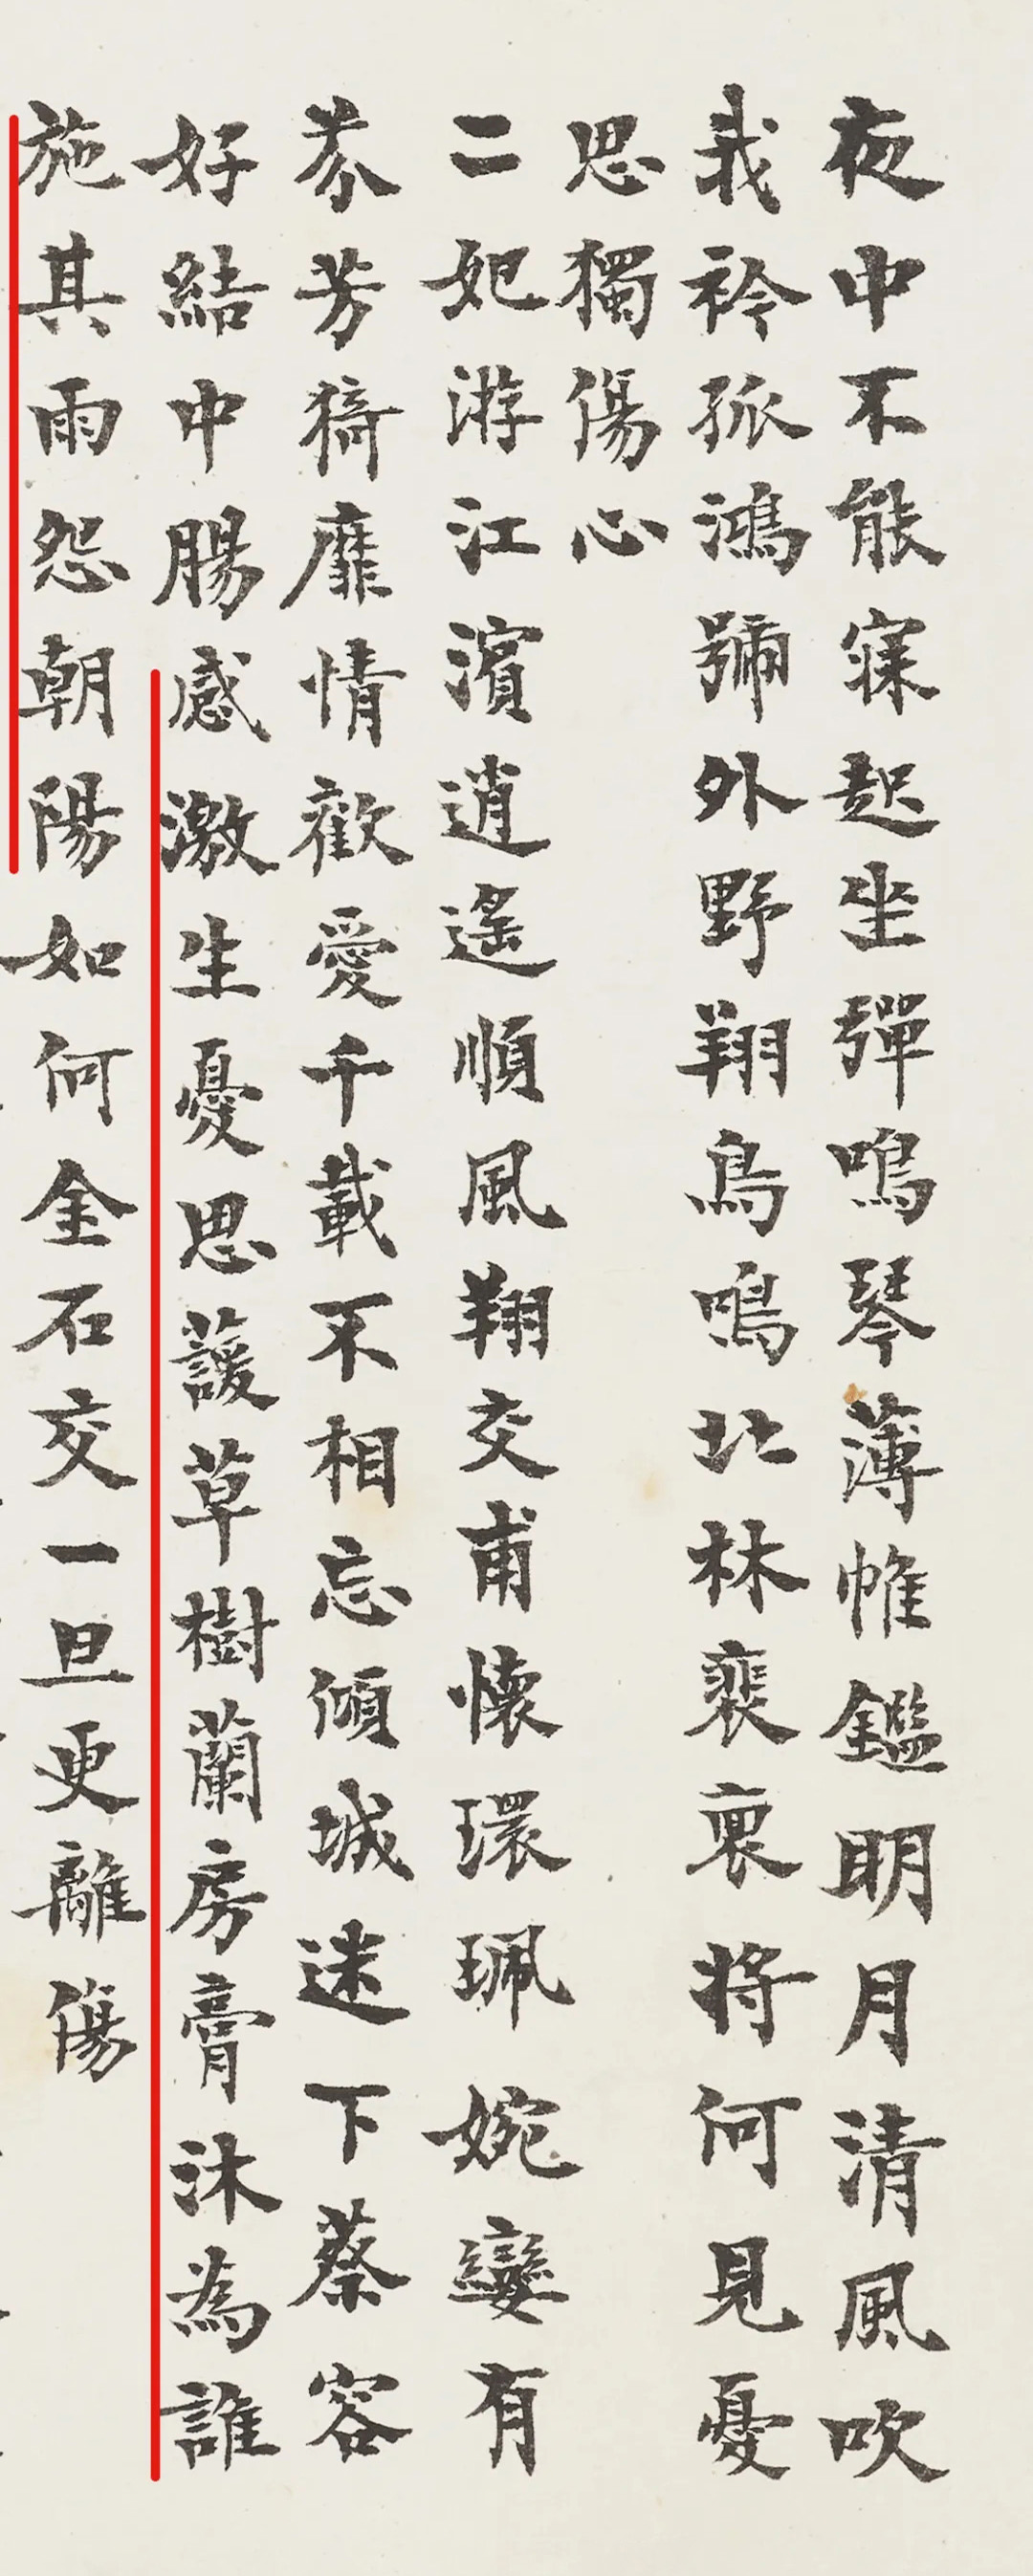 夜中不能寐起坐彈鳴琴薄帷鑑明月清風吹
我衿孤鴻號外野翔鳥鳴北林裴裵将何見憂
思獨傷心
二妃游江濱逍遙順風翔交甫懷環珮婉孌有
芬芳猗靡情歡愛千載不相忘傾城迷下蔡容
好結中腸感激生憂思諼草樹蘭房膏沐為誰
施其雨怨朝陽如何金石交一旦更離傷